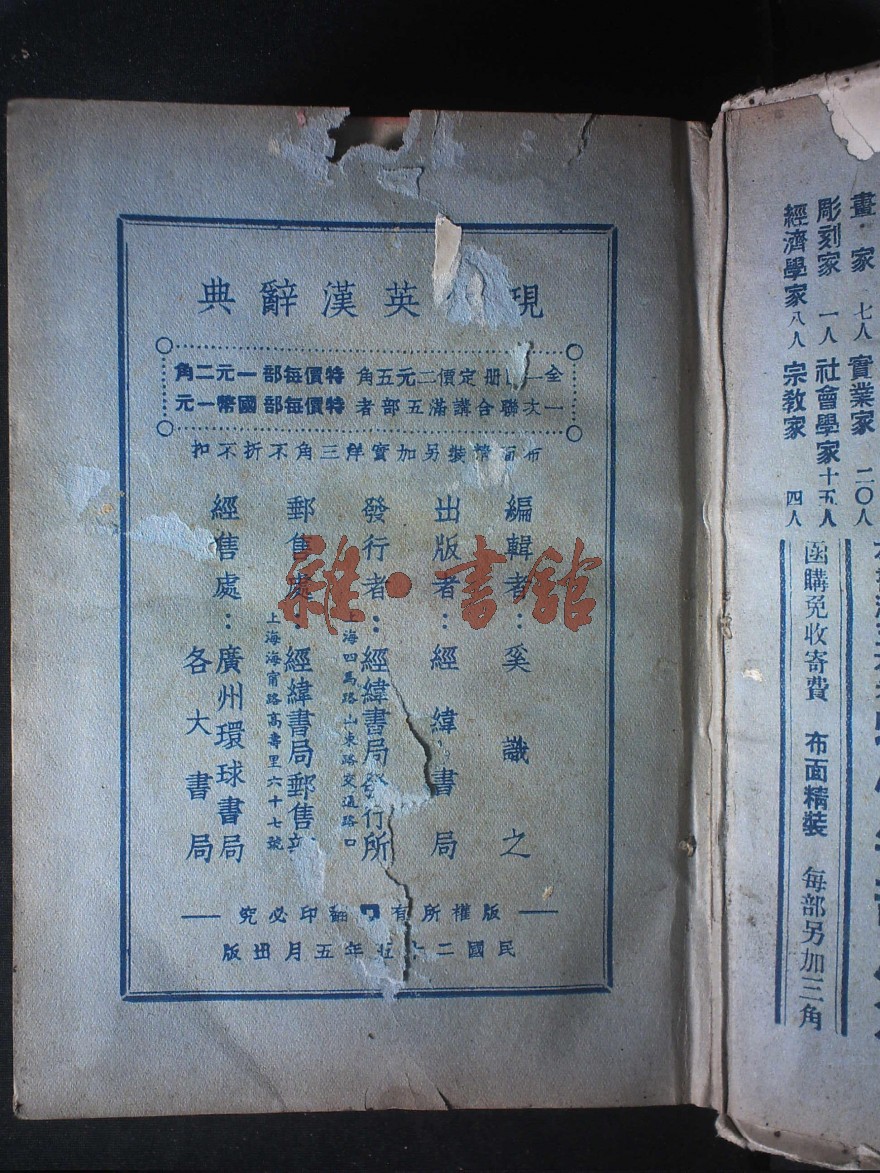 畫 家 七人 實業家 二〇人
彫刻家 一人 社會學家 十五人
經濟學家 八人 宗教家 四人
函購免收寄費 布面精裝 每部另加三角
現 英漢辭典
全一 册定價二元五角 特價每部一元二角
一次聯合購滿五部者 特價每部國幣一元
布面精裝另加實洋三角不折不扣
編輯者：奚識之
出版者：經緯書局
發行者：經緯書局發行所
上海四馬路山東路交通路口
郵售處：經緯書局郵售部
上海海甯路高壽里六十七號
經售處：廣州環球書局
各大書局
版權所有 翻印必究
民國二十五年五月出版
雜·書館